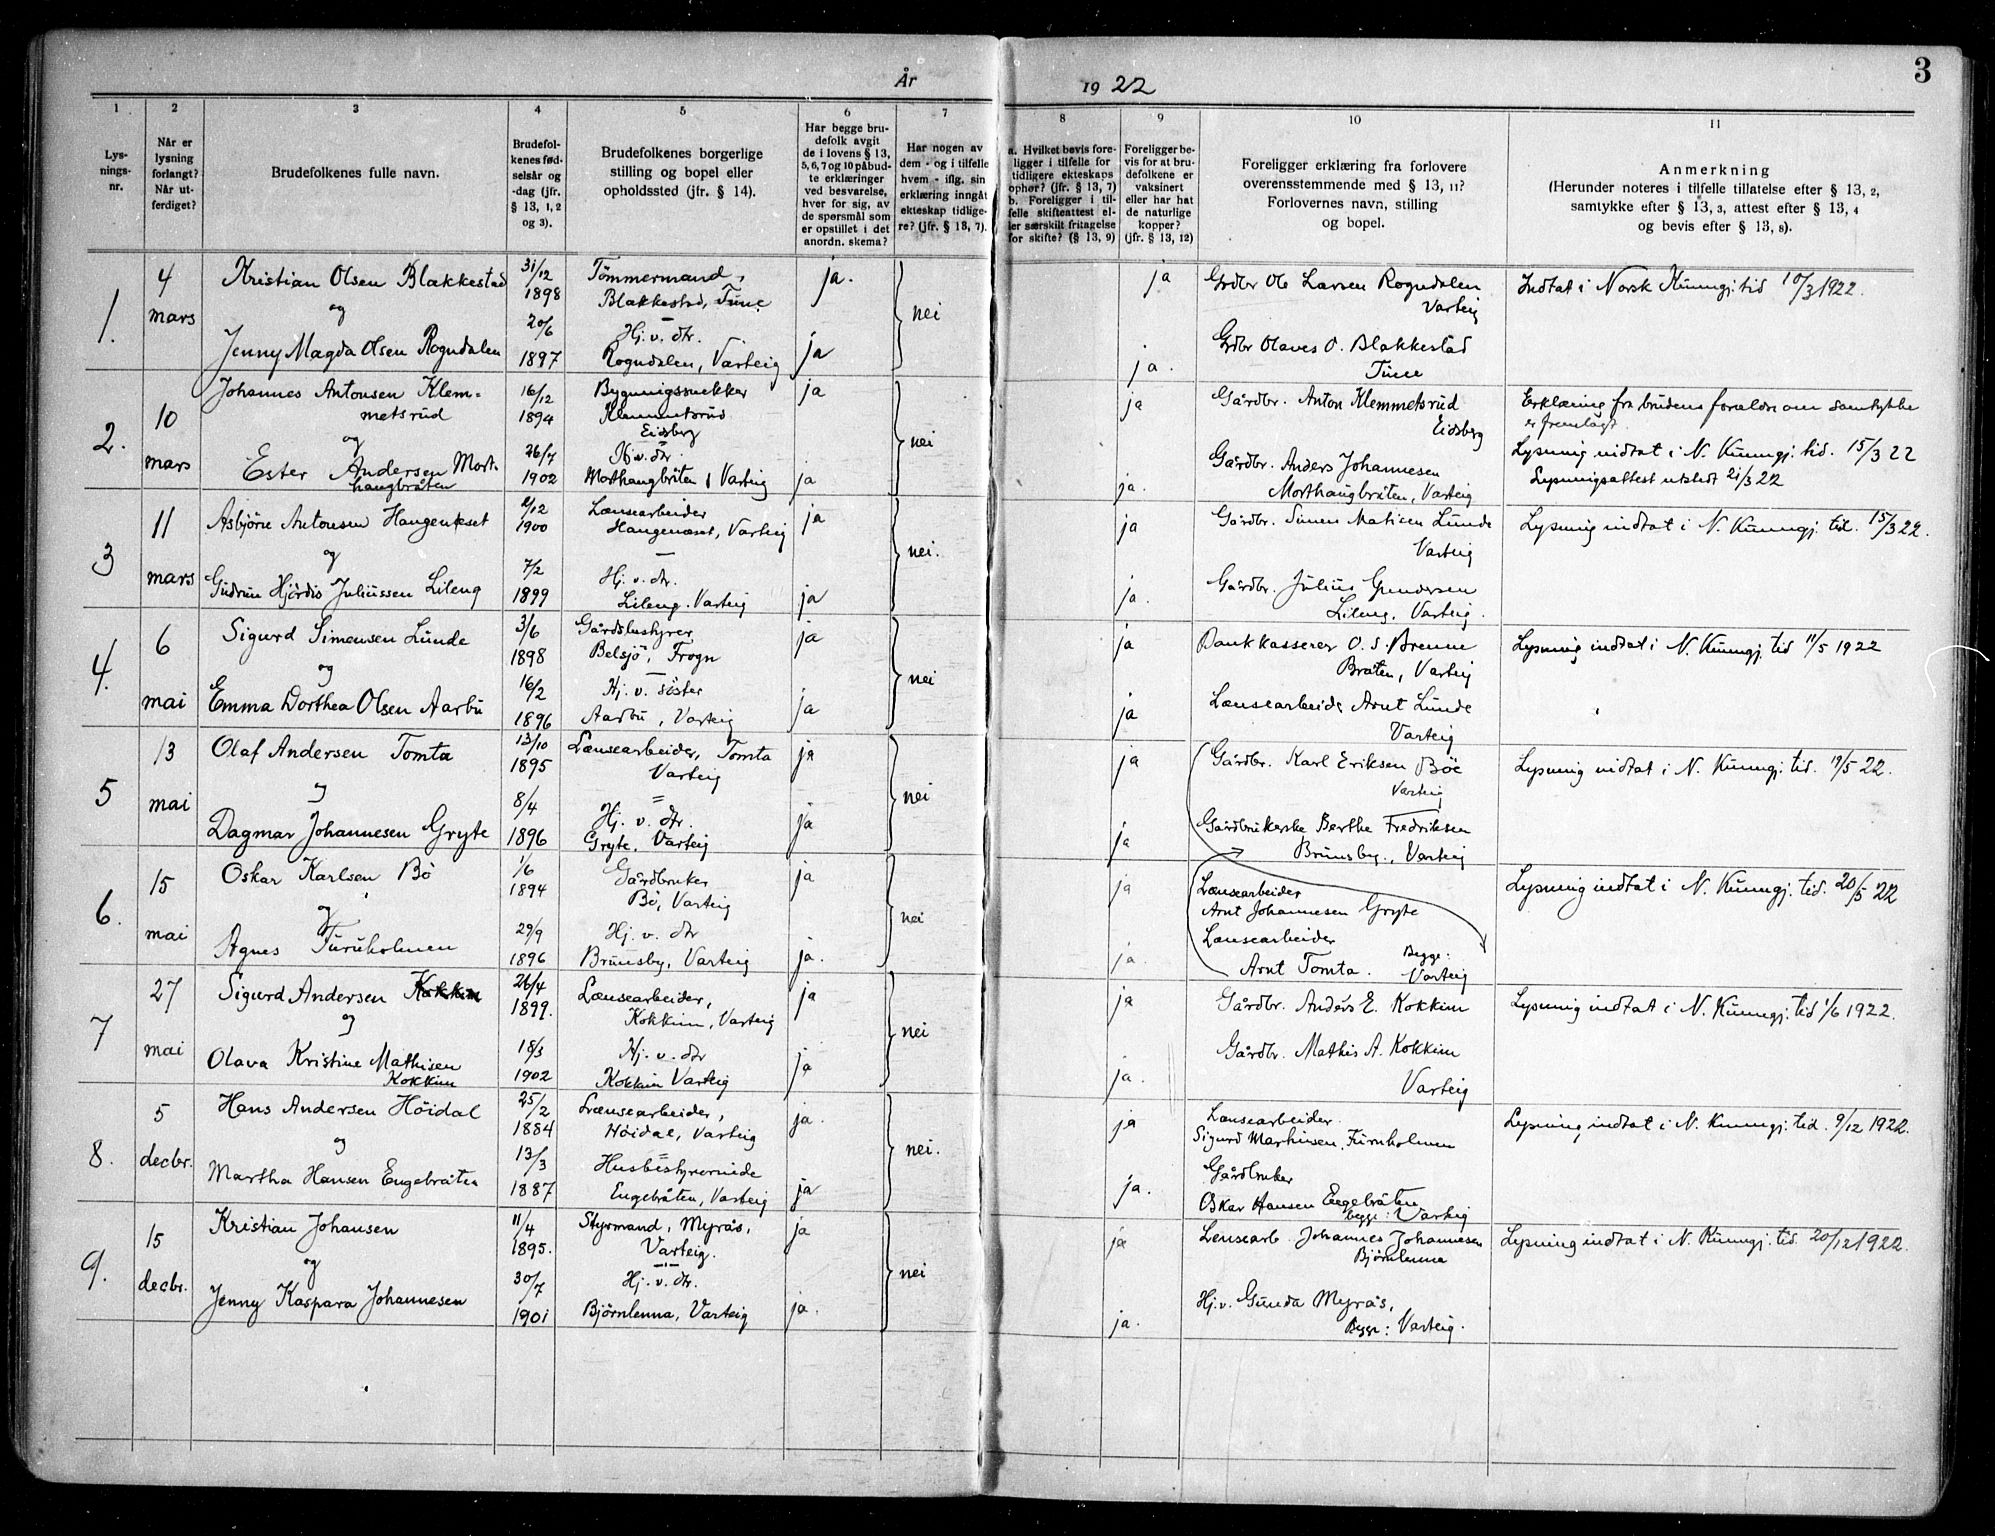 3
År 1922
1 2 3 4 5 6 7 8 9 10 11
Lys-
nings-
nr.
Når er
lysning
forlangt?
Når ut-
ferdiget?
Brudefolkenes fulle navn.
Brudefol-
kenes fød-
selsår og
-dag (jfr.
§ 13, 1, 2
og 3).
Brudefolkenes borgerlige
stilling og bopel eller
opholdssted (jfr. § 14).
Har begge bru-
defolk avgit
de i lovens § 13,
5, 6, 7 og 10 påbud-
te erklæringer
ved besvarelse,
hver for sig, av
de spørsmål som
er opstillet i det
anordn. skema?
Har nogen av
dem - og i tilfelle
hvem - iflg. sin
erklæring inngåt
ekteskap tidlige-
re? (jfr. § 13, 7).
a. Hvilket bevis fore-
ligger i tilfelle for
tidligere ekteskaps
ophør? (jfr. § 13, 7)
b. Foreligger i til-
felle skifteattest el-
ler særskilt fritagelse
for skifte? (§ 13, 9)
Foreligger be-
vis for at bru-
defolkene er
vaksinert
eller har hat
de naturlige
kopper?
(jfr. § 13, 12)
Foreligger erklæring fra forlovere
overensstemmende med § 13, 11?
Forlovernes navn, stilling
og bopel.
Anmerkning
(Herunder noteres i tilfelle tillatelse efter § 13, 2,
samtykke efter § 13, 3, attest efter § 13, 4
og bevis efter § 13, 8).
1. 4 mars Kristian Olsen Blakkestad 31/12 1898 Tömmermand, Blakkestad, Tune ja. nei ja Grdbr Ole Larsen Rogndalen Varteig Indtat i Norsk Kunngj. tid 10/3 1922.
og
Jenny Magda Olsen Rogndalen 20/6 1897 Hj. v. dtr. Rogndalen, Varteig ja ja. Grdbr Olaves O. Blakkestad Tune
2. 10 mars Johannes Antonsen Klemmetsrud 16/12 1894 Bygningssnekker Klemmetsrud Eidsberg ja nei ja Gårdbr. Anton Klemmetsrud Eidsberg Erklæring fra brudens foreldre om samtykke er fremlagt.
og
Ester Andersen Morthaugbråten 26/7 1902 Hj. v. dtr. Morthaugbråten, Varteig ja ja. Gårdbr. Anders Johannesen Morthaugbråten, Varteig Lysning indtat i N. Kunngj. tid. 15/3 22
Lysningsattest utstedt 21/3 22
3 11 mars Asbjörn Antonsen Haugenæset /12 1900 Lænsearbeider Haugenæset, Varteig ja nei. ja Gårdbr. Simen Matisen Lunde Varteig Lysning indtat i N. Kunngj. tid. 15/3 22.
og
Gudrun Hjördis Juliussen Lileng 7/2 1899 Hj. v. dtr. Lileng. Varteig ja ja. Gårdbr. Julius Gundersen Lileng, Varteig.
4. 6 mai Sigurd Simensen Lunde 3/6 1898 Gårdsbestyrer, Belsjö, Frogn ja nei ja Bankkasserer O. S. Brenne Bråten, Varteig Lysning indtat i N. Kunngj. tid 11/5 1922
og
Emma Dorthea Olsen Aarbu 16/2 1896 Hj. v. söster Aarbu, Varteig ja ja Lænsearbeide Arnt Lunde Varteig
5 13 mai Olaf Andersen Tomta 13/10 1895 Lænsearbeider, Tomta Varteig ja nei ja Gårdbr. Karl Eriksen Böe Varteig Lysning indtat i N. Kunngj. tid. /5 22.
og
Dagmar Johannesen Gryte 8/4 1896 Hj. v. dtr. Gryte, Varteig ja ja Gårdbrukerske Berthe Fredriksen Brunsby, Varteig
6. 15 mai Oskar Karlsen Bö 1/6 1894 Gårdbruker Bö, Varteig ja nei ja Lænsearbeider Arnt Johannesen Gryte Lysning indtat i N. Kunngj. tid. 20/5 22
og
Agnes Furuholmen 29/9 1896 Hj. v. dtr Brunsby, Varteig ja. ja. Lænsearbeider Arnt Tomta. Begge: Varteig
7 27 mai Sigurd Andersen Kokkim 26/4 1899. Lænsearbeider, Kokkim, Varteig ja nei ja Gårdbr. Anders E. Kokkim Lysning indtat i N. Kunngj. tid 1/6 1922.
og
Olava Kristine Mathisen Kokkim 18/3 1902 Hj. v. dtr Kokkim Varteig ja ja. Gårdbr. Mathis A. Kokkim Varteig
8. 5 decbr. Hans Andersen Höidal 25/2 1884 Lænsearbeider, Höidal, Varteig ja. nei. ja Lænsearbeider. Sigurd Martinsen, Furuholmen Lysning indtat i N. Kunngj. tid. 9/12 1922.
og
Martha Hansen Engebråten 13/3 1887 Husbestyrerinde Engebråten, Varteig ja ja. Gårdbruker Oskar Hansen Engebråten begge: Varteig
9. 15 decbr. Kristian Johansen 11/4 1895. Styrmand, Myrås, Varteig. ja nei ja Lensearb. Johannes Johannesen Bjørnlenna Lysning indtat i N. Kunngj. tid. 20/12 1922.
og
Jenny Kaspara Johannesen 30/7 1901 Hj. v. dtr. Bjørnlenna, Varteig ja. ja. Hj. v. Gunda Myrås, Begge: Varteig.